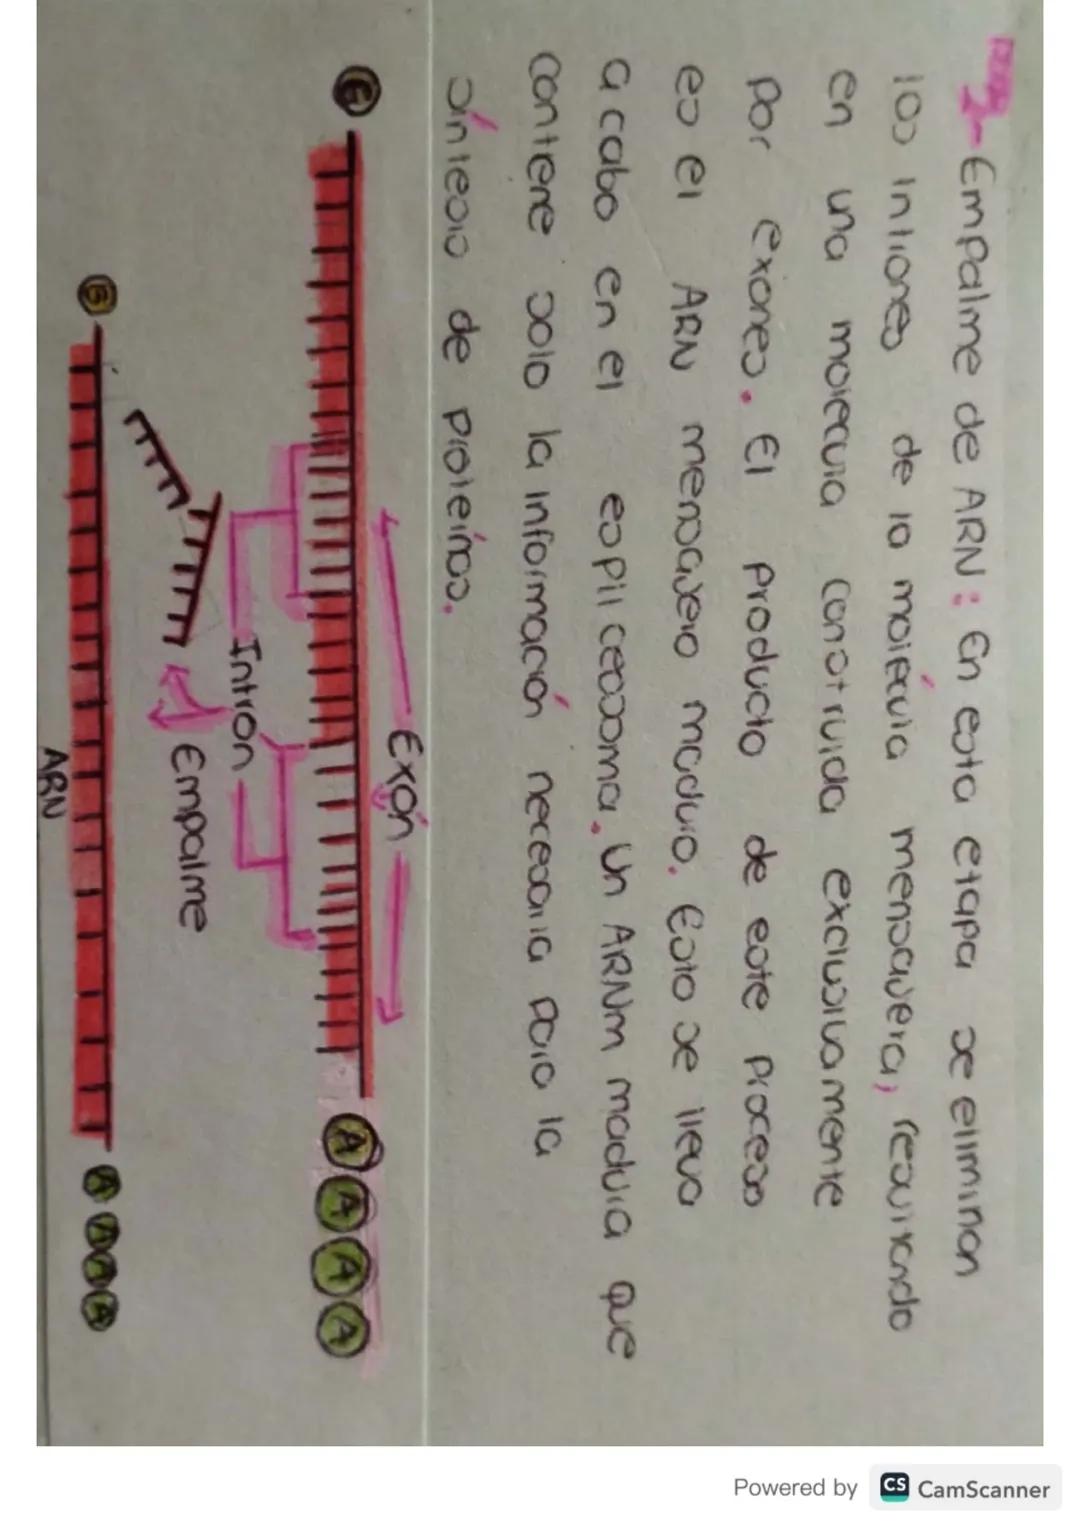 2- Empalme de ARN: En esta etapa se eliminan
los intrones de la molécula mensajera, resultando
en una molecula construida exclusivamente
por exones. El producto de este proceso
es el ARN mensajero maduro. Esto se lleva
a cabo en el espliceosoma. Un ARNm madura que
contiene solo la información necesaria para la
síntesis de proteínas.
Exón
G
A A A A
Intrón
Empalme
G
A A A A
ARN
Powered by CS CamScanner